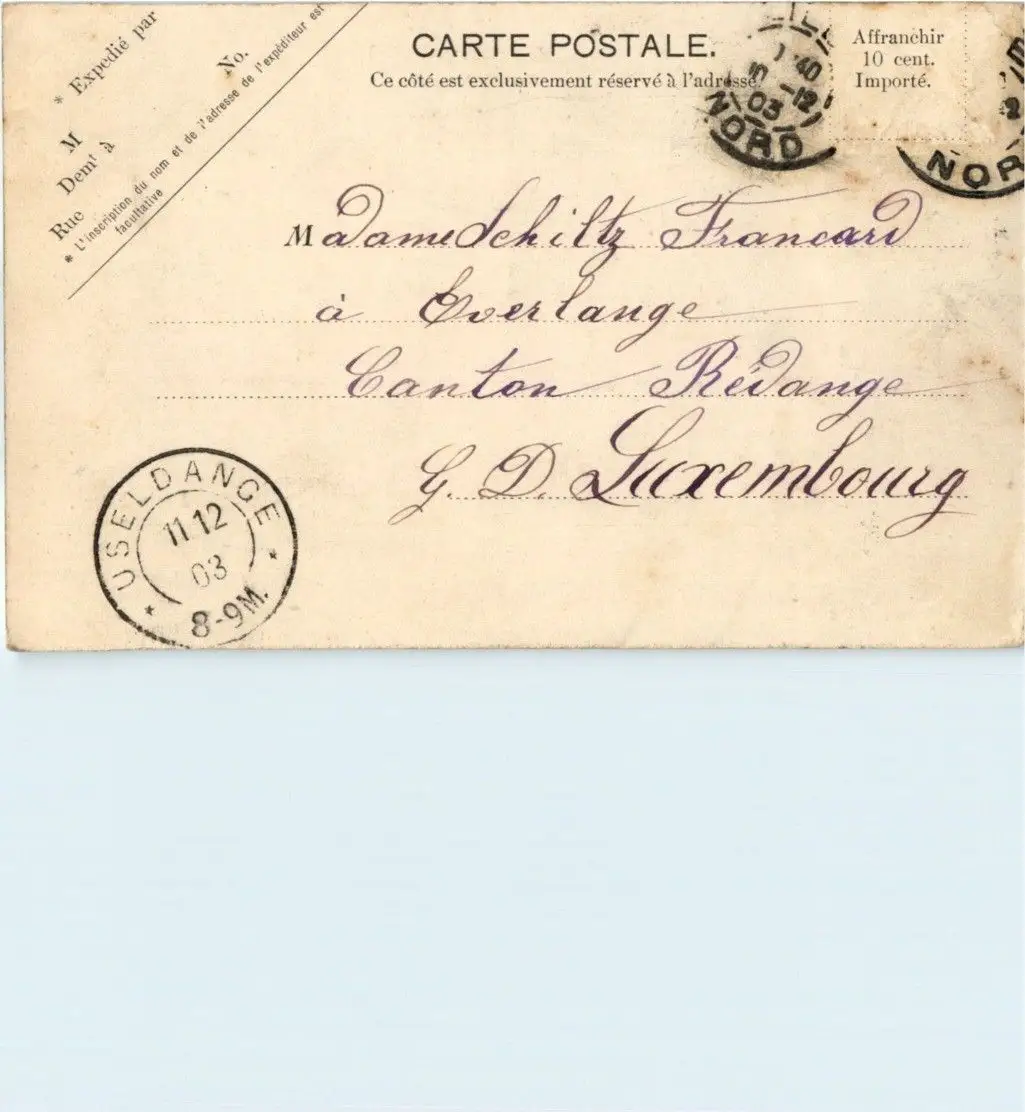 * Expedié par
No.
M
Demᵗ à
Rue
* L'inscription du nom et de l'adresse de l'expéditeur est
facultative
CARTE POSTALE.
Ce côté est exclusivement réservé à l'adresse.
Affranchir
10 cent.
Importé.
40
-12
03
NORD
NOR
Madame Schiltz Francard
à Everlange
Canton Rédange
G. D. Luxembourg
USELDANGE
11 12
03
8-9M.